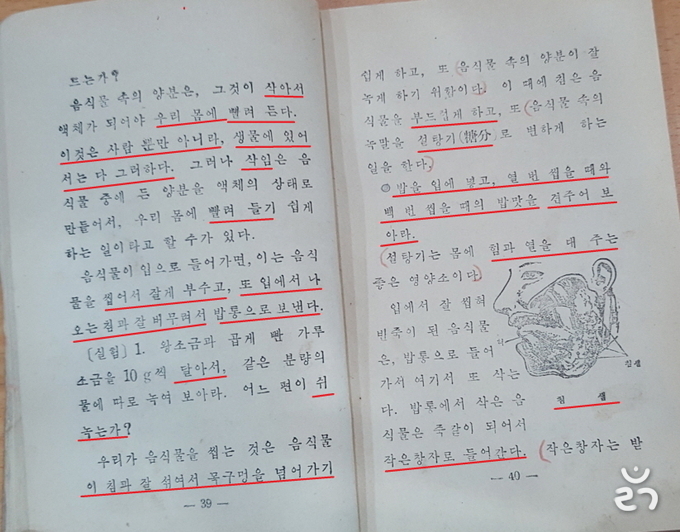 드는가?
음식물 속의 양분은, 그것이 삭아서
액체가 되어야 우리 몸에 빨려 든다.
이것은 사람 뿐만 아니라, 생물에 있어
서는 다 그러하다. 그러나 삭임은 음
식물 중에 든 양분을 액체의 상태로
만들어서, 우리 몸에 빨려 들기 쉽게
하는 일이라고 할 수가 있다.
음식물이 입으로 들어가면, 이는 음식
물을 씹어서 잘게 부수고, 또 입에서 나
오는 침과 잘 버무려서 밥통으로 보낸다.
[실험] 1. 왕소금과 곱게 빤 가루
소금을 10g씩 달아서, 같은 분량의
물에 따로 녹여 보아라. 어느 편이 쉬
녹는가?
우리가 음식물을 씹는 것은 음식물
이 침과 잘 섞여서 목구멍을 넘어가기
— 39 —
쉽게 하고, 또 (음식물 속의 양분이 잘
녹게 하기 위함이다.) 이 때에 침은 음
식물을 부드럽게 하고, 또 (음식물 속의
녹말을 설탕기(糖分)로 변하게 하는
일을 한다.)
◎밥을 입에 넣고, 열 번 씹을 때와
백 번 씹을 때의 밥맛을 견주어 보
아라.
(설탕기는 몸에 힘과 열을 대 주는
좋은 영양소이다.)
입에서 잘 씹혀
반죽이 된 음식물
은, 밥통으로 들어
가서 여기서 또 삭는
다. 밥통에서 삭은 음
식물은 죽같이 되어서
작은창자로 들어간다. (작은창자는 받
혀
침샘
침 샘
— 40 —